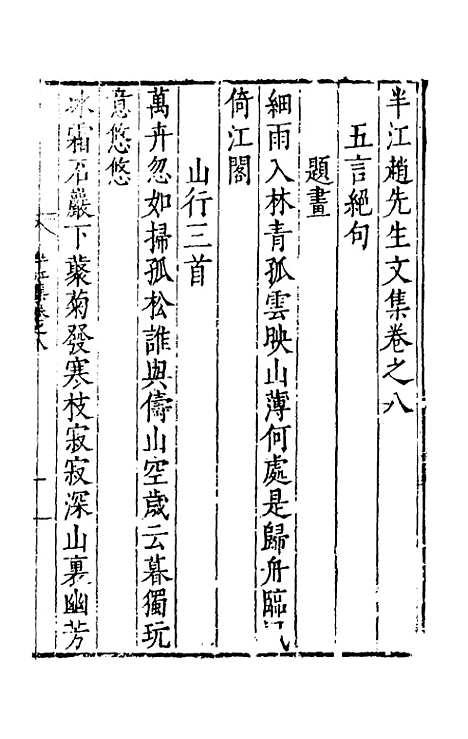 半江趙先生文集卷之八
五言絕句
題畫
細雨入林青孤雲映山薄何處是歸舟臨風
倚江閣
山行三首
萬卉忽如掃孤松誰與儔山空歲云暮獨玩
意悠悠
冰霜石巖下藂菊發寒枝寂寂深山裏幽芳
半江集卷之八
一